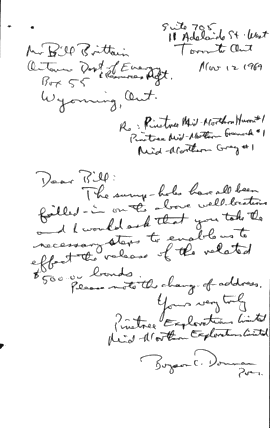 Suite 705
11 Adelaide St. West
Toronto Ont
Nov 12 1969
Mr Bill Brittain
Ontario Dept of Energy
& Resources Mgt.
Box 55
Wyoming, Ont.
Re: Pinetree Mid-Northern Hunt #1
Pinetree Mid-Northern #1
Mid-Northern Gray #1
Dear Bill:
The sump-holes have all been
filled-in on the above well locations
and I would ask that you take the
necessary steps to enable us to
effect the release of the related
$500.00 bonds.
Please note the change of address.
Yours very truly
Pinetree Explorations Limited
Mid-Northern Exploration Limited
C.
Pres.